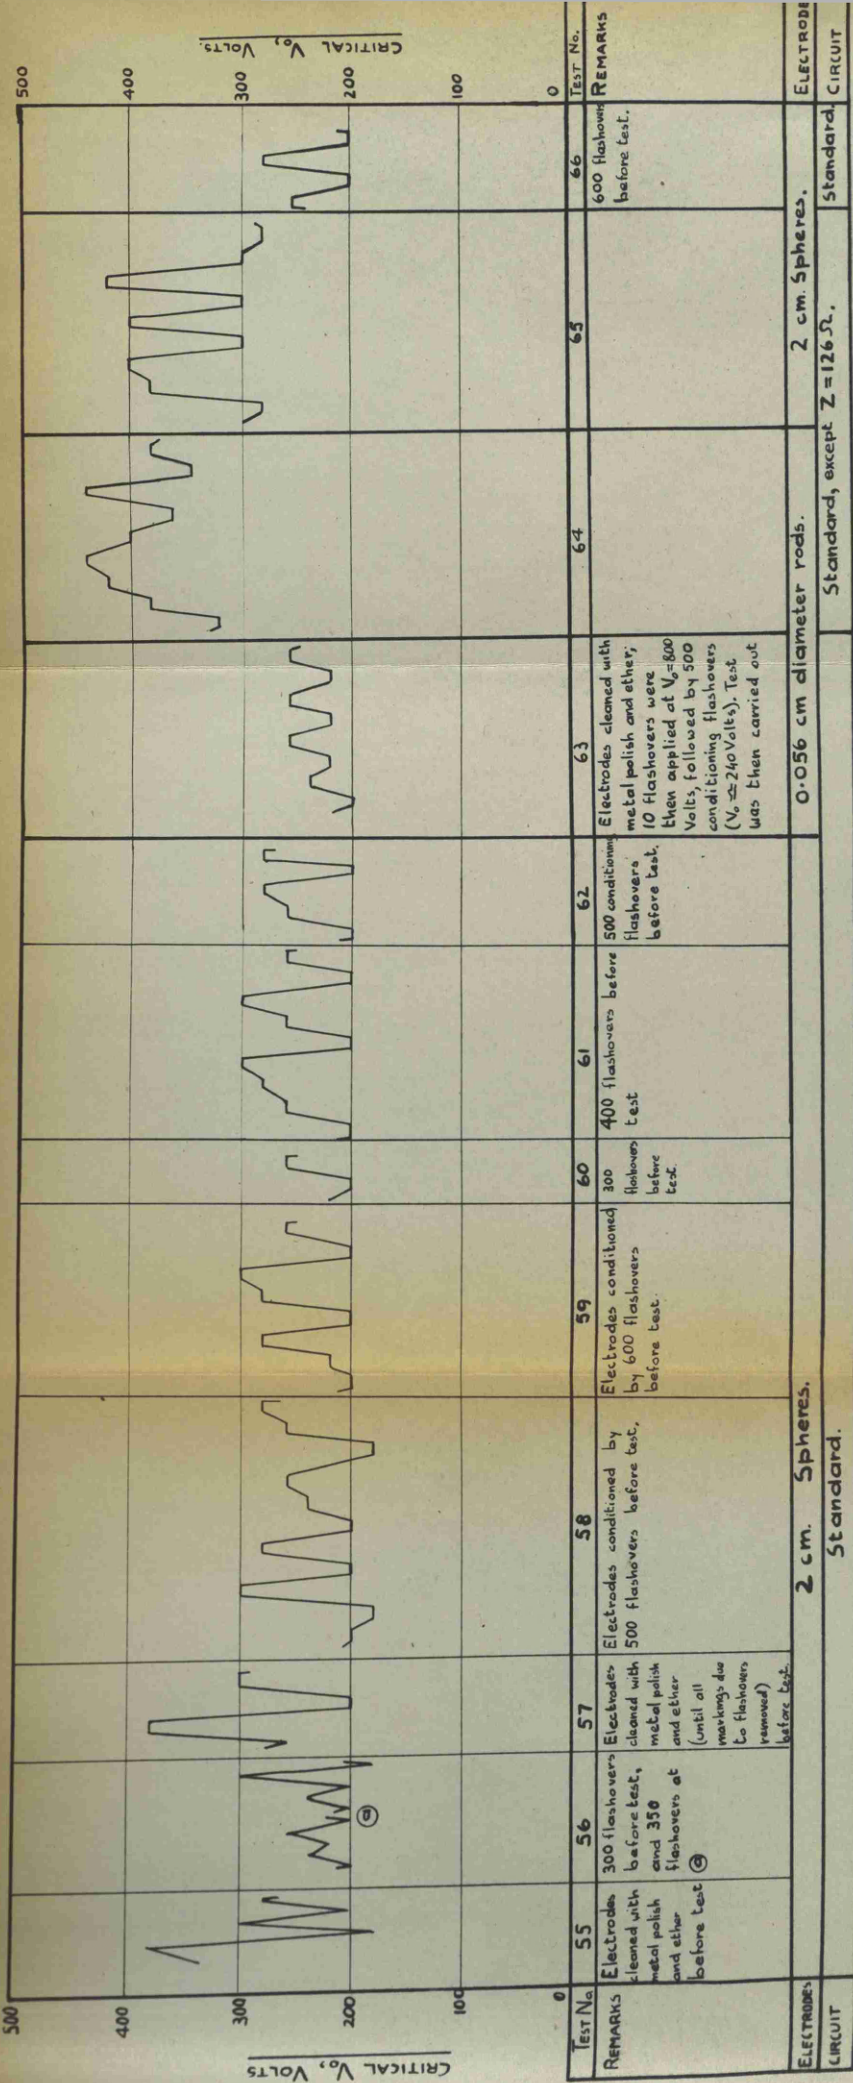 CRITICAL V₀, VOLTS
500
400
300
200
100
0
TEST No.
55
56
57
58
59
60
61
62
63
64
65
66
TEST No.
ⓐ
REMARKS
Electrodes
cleaned with
metal polish
and ether
before test
300 flashovers
before test,
and 350
flashovers at
ⓐ
Electrodes
cleaned with
metal polish
and ether
(until all
markings due
to flashovers
removed)
before test.
Electrodes conditioned by
500 flashovers before test.
Electrodes conditioned
by 600 flashovers
before test.
300
flashovers
before
test.
400 flashovers before
test
500 conditioning
flashovers
before test.
Electrodes cleaned with
metal polish and ether;
10 flashovers were
then applied at V₀=800
Volts, followed by 500
conditioning flashovers
(V₀ ≏ 240 Volts). Test
was then carried out
600 flashovers
before test.
REMARKS
ELECTRODES
2 cm. Spheres.
0.056 cm diameter rods.
2 cm. Spheres.
ELECTRODE
CIRCUIT
Standard.
Standard, except Z = 126 Ω.
Standard.
CIRCUIT
500
400
300
200
100
0
CRITICAL V₀, VOLTS.